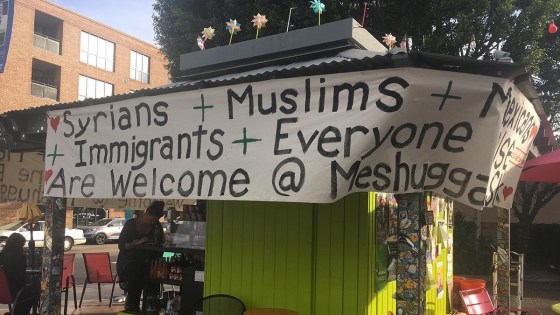 Syrians + Muslims + Mexicans
+ Immigrants + Everyone
Are Welcome @ Meshugga